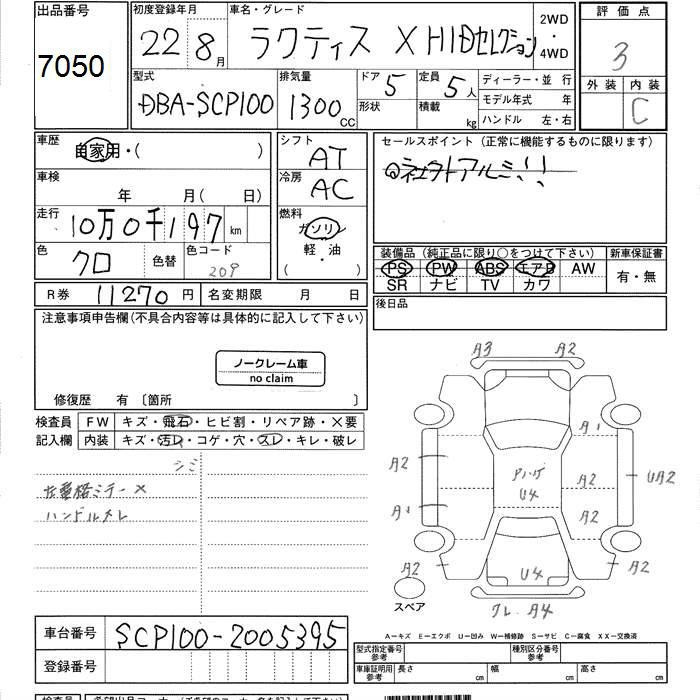 出品番号
7050
初度登録年月
22 8月
車名・グレード
ラクティス X HIDセレクション
2WD
・
4WD
評価点
3
外装 内装
C
型式
DBA-SCP100
排気量
1300 CC
ドア 5
形状
定員 5人
積載 kg
ディーラー・並 行
モデル年式 年
ハンドル 左・右
車歴
自家用・( )
車検
年 月( 日)
走行
10万0千197 km
色
クロ
色替
色コード
209
シフト
AT
冷房
AC
燃料
ガソリン
軽・油
( )
セールスポイント (正常に機能するものに限ります)
装備品 (純正品に限り○をつけて下さい)
PS PW ABS エアB AW
SR ナビ TV カワ
新車保証書
有・無
R券 11270円
名変期限 月 日
後日品
注意事項申告欄(不具合内容等は具体的に記入して下さい)
ノークレーム車
no claim
修復歴 有 〔箇所 〕
検査員
記入欄
FW キズ・飛石・ヒビ割・リペア跡・×要
内装 キズ・汚レ・コゲ・穴・スレ・キレ・破レ
シミ
ハンドルスレ
A3 A2
A1
A2
A2
UA2
Pハゲ
U4
A1
A2
A2
U4
A2
スペア
クレ A4
A-キズ E-エクボ U-凹み W-補修跡 S-サビ C-腐食 XX-交換済
車台番号
SCP100-2005395
登録番号
型式指定番号
参考
種別区分番号
参考
車庫証明用
参考
長さ cm
幅 cm
高さ cm